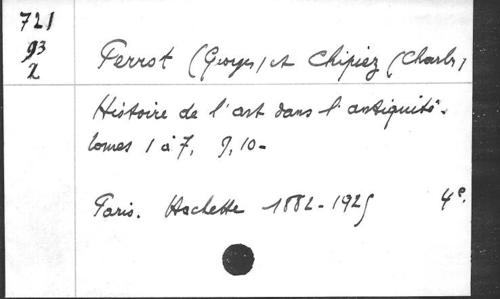 721
93
2
Perrot (Georges) et Chipiez (Charles)
Histoire de l'art dans l'antiquité.
tomes 1 à 7, 9, 10-
Paris. Hachette 1882-1925 4e.